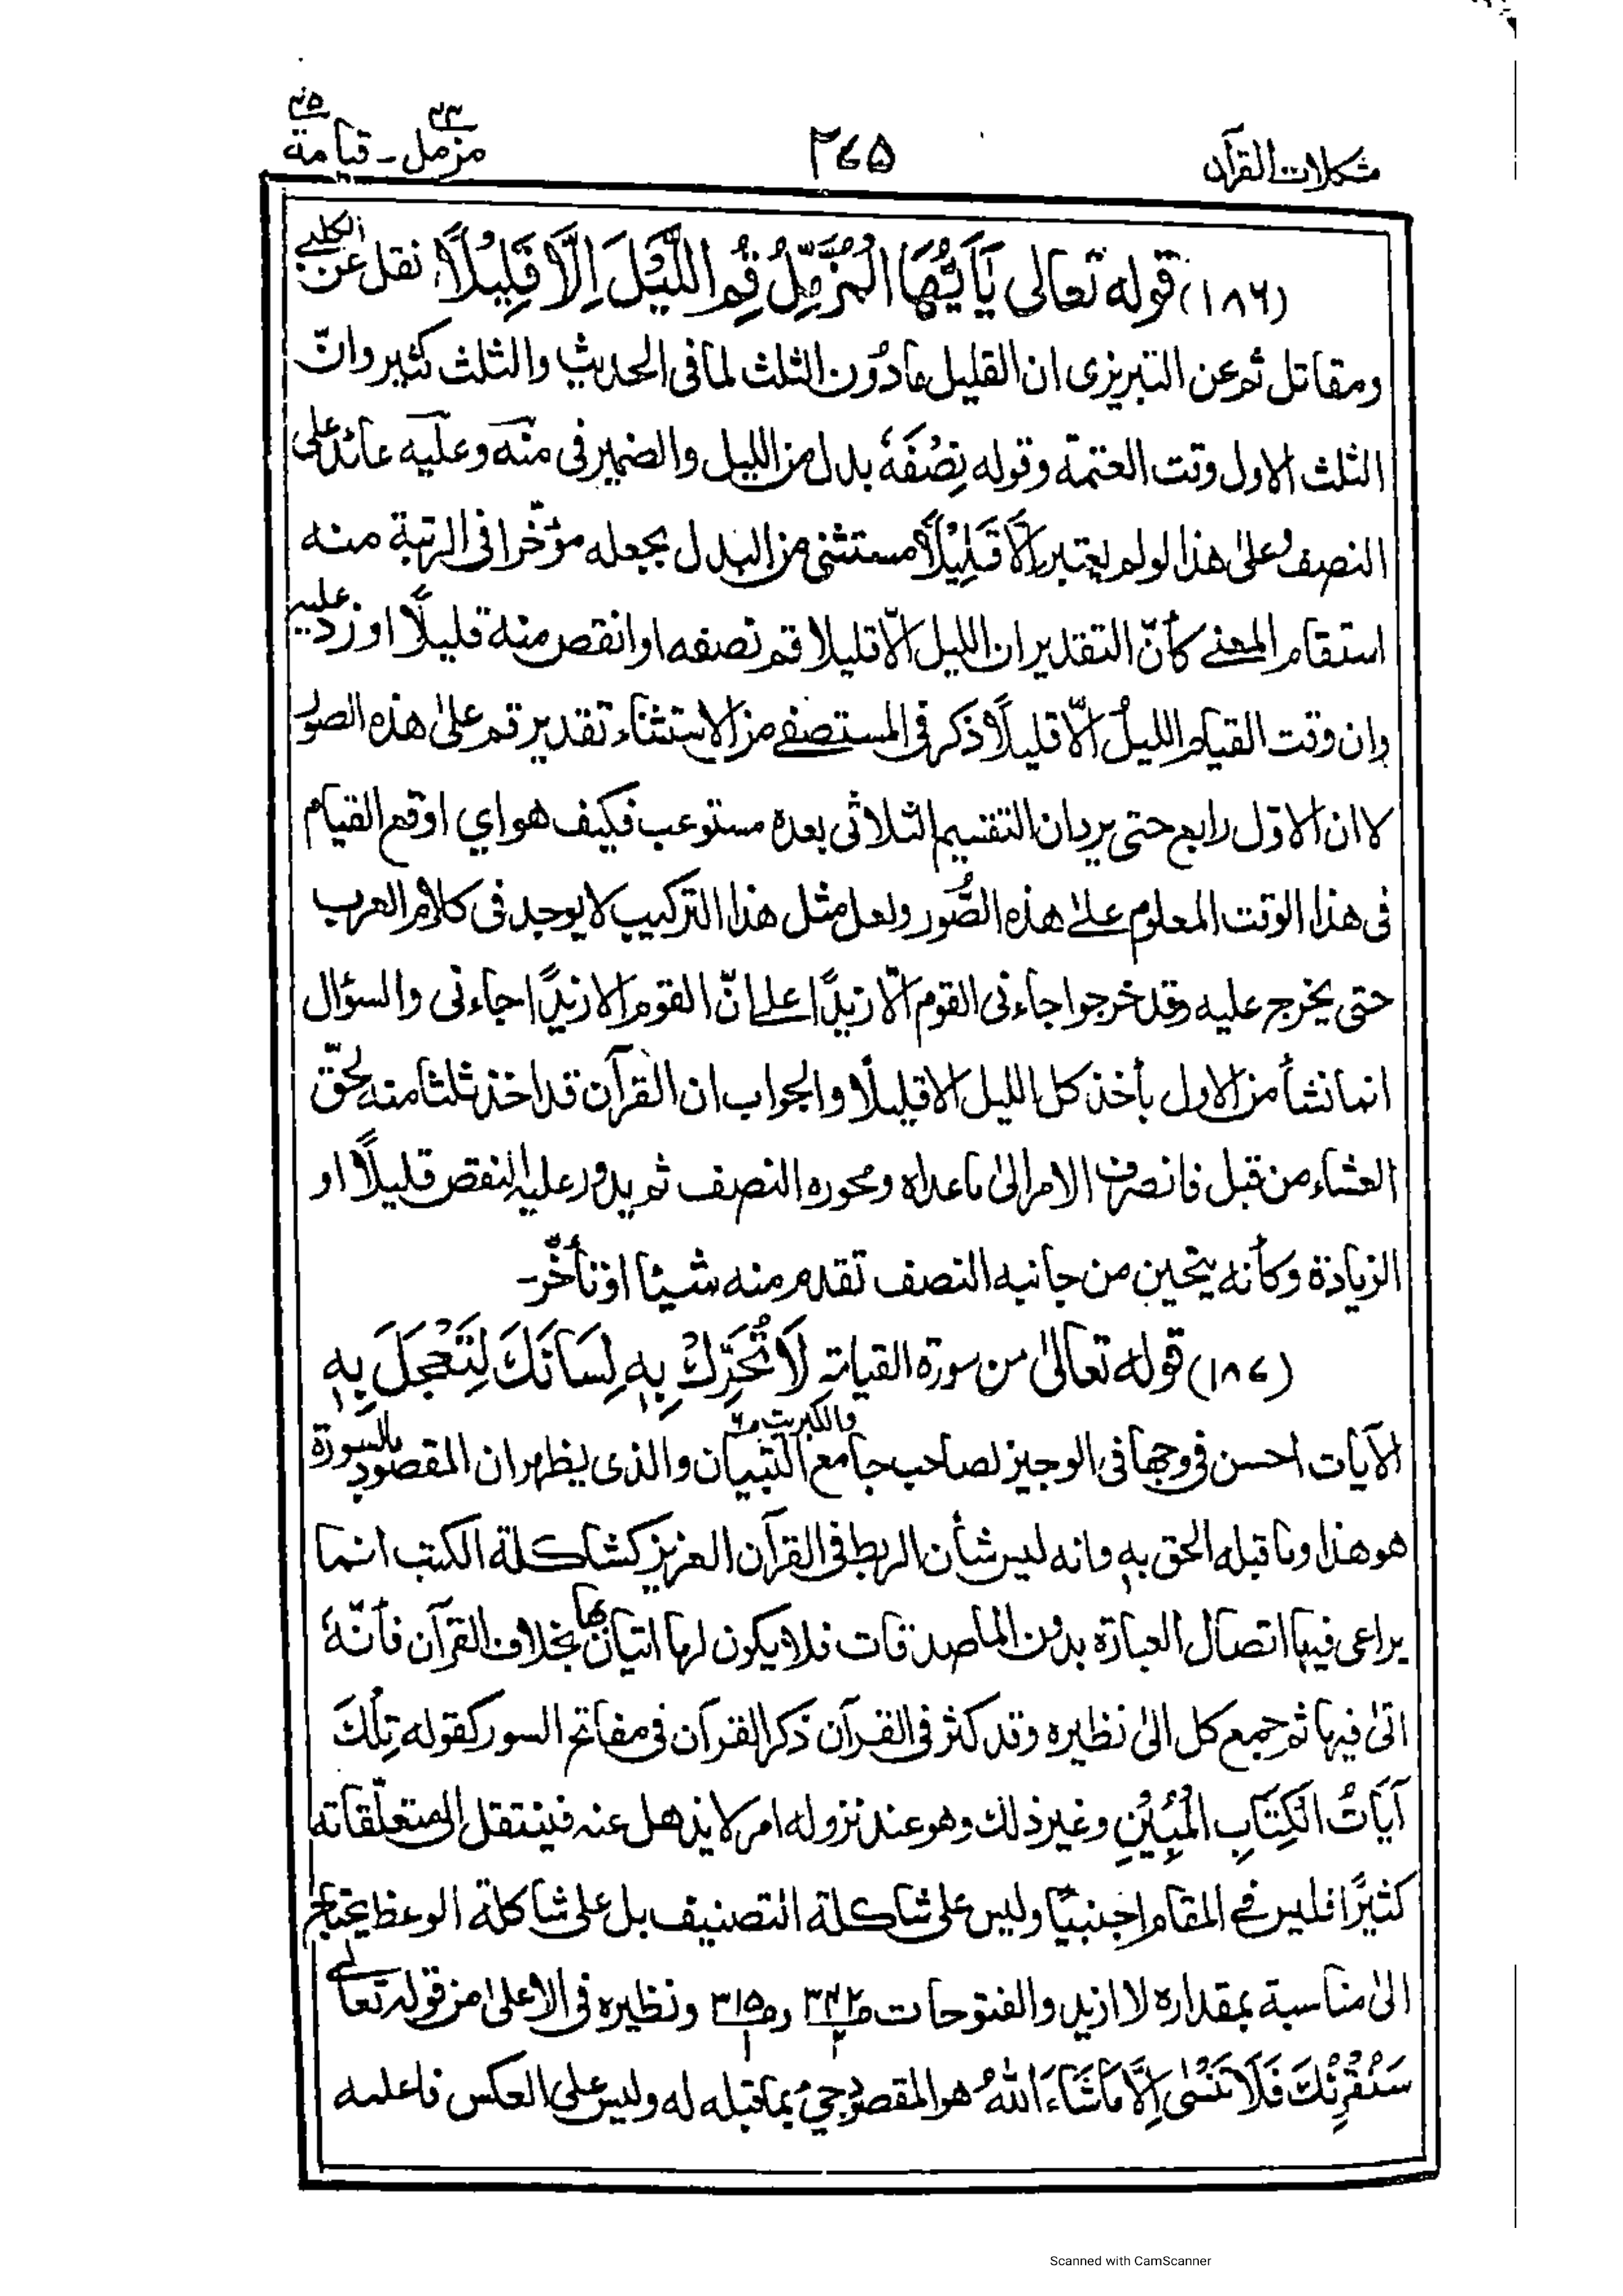 مشكلات القرآن ٢٧٥ مزمل ـ قيامة
٧٣ ٧٥
(١٨٦) قوله تعالى يَآ أَيُّهَا الْمُزَّمِّلُ قُمِ اللَّيْلَ اِلَّا قَلِيْلًا، نقل عن الكلبي
ومقاتل ثم عن التبريزى ان القليل مادون الثلث لما فى الحديث والثلث كثير وانّ
الثلث الاول وقت العتمة وقوله نِصْفَهٗ بدل من الليل والضمير فى منه وعليه عائد على
النصف وعلىٰ هذا لو لم يعتبر اِلَّا قَلِيْلًا مستثنى من البدل بجعله مؤخرا فى الرتبة منه
استقام المعنے كأنّ التقدير ان الليل الّا قليلا قم نصفه او انقص منه قليلًا او زد عليه
وان وقت القيام الليلُ الّا قليلًا ذكر فى المستصفے من الاستثناء تقدير قم علىٰ هذه الصور
لا ان الاوّل رابع حتى يرد ان التقسيم الثلاثى بعده مستوعب فكيف هو اي اوقع القيام
فى هذا الوقت المعلوم علےٰ هذه الصُّور ولعل مثل هذا التركيب لا يوجد فى كلام العرب
حتى يخرج عليه وقد خرجوا جاءنى القوم الّا زيدًا علے انّ القوم الا زيدًا جاءنى والسؤال
انما نشأ من الاول بأخذ كل الليل الا قليلًا والجواب ان القرآن قد اخذ ثلثا منه لحقّ
العشاء من قبل فانصرف الامر الىٰ ماعداه ومحوره النصف ثم يدور عليه النقص قليلًا او
الزيادة وكأنه يتحين من جانبه النصف تقدم منه شيئا او تأخّر-
(١٨٧) قوله تعالىٰ من سورة القيامة لَا تُحَرِّكْ بِهٖ لِسَانَكَ لِتَعْجَلَ بِهٖ
الآيات احسن فى وجهها فى الوجيز لصاحب جامع التبيان والكبريت والذى يظهر ان المقصود بالسورة
هو هذا وما قبله الحق بهٖ وانه ليس شأن الربط فى القرآن العزيز كشاكلة الكتب انما
يراعى فيها اتصال العبارة بدون الماصدقات فلا يكون لها اتيان بها بخلاف القرآن فأنّهٗ
اتىٰ فيها ثم جمع كل الىٰ نظيره وقد كثر فى القرآن ذكر القرآن فى مفاتح السور كقوله تِلْكَ
آيَاتُ الْكِتَابِ الْمُبِيْنِ وغير ذلك وهو عند نزوله امر لا يذهل عنه فينتقل الى متعلّقاته
كثيرًا فليس فے المقام اجنبيًا وليس على شاكلة التصنيف بل على شاكلة الوعظ يحتاج
الىٰ مناسبة بمقداره لا ازيد والفتوحات ونظيره فى الاعلىٰ من قوله تعالے
سَنُقْرِئُكَ فَلَا تَنْسٰى اِلَّا مَا شَاءَ اللّٰهُ هو المقصود جئ بما قبله له وليس على العكس فاعلمه
Scanned with CamScanner